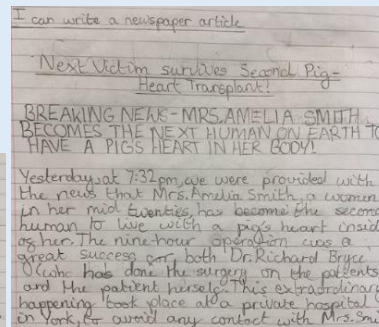 I can write a newspaper article
Next Victim survives Second Pig-
Heart Transplant!
BREAKING NEWS - MRS.AMELIA SMITH
BECOMES THE NEXT HUMAN ON EARTH TO
HAVE A PIGS HEART IN HER BODY!
Yesterday,at 7:32pm,we were provided with
the news that Mrs.Amelia Smith, a women
in her mid twenties, has become the second
human to live with a pig's heart inside
of her. The nine-hour operation was a
great success for both Dr.Richard Bryce
(who has done the surgery on the patients
and the patient herself. This extraordinary
happening took place at a private hospital
in York, to avoid any contact with Mrs.Smi